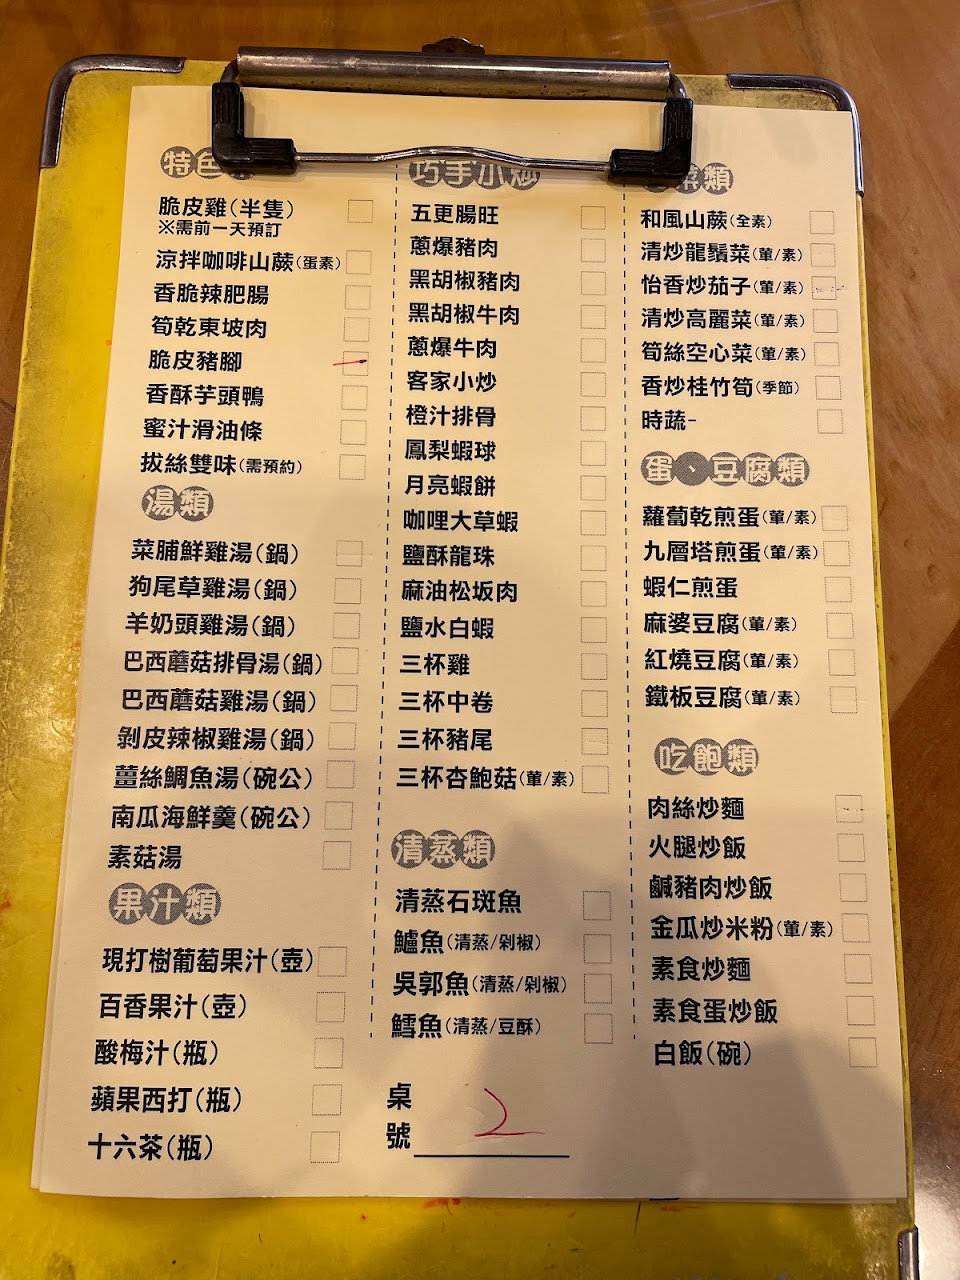 特色
脆皮雞(半隻)
※需前一天預訂
涼拌咖啡山蕨(蛋素)
香脆辣肥腸
筍乾東坡肉
脆皮豬腳
香酥芋頭鴨
蜜汁滑油條
拔絲雙味(需預約)
湯類
菜脯鮮雞湯(鍋)
狗尾草雞湯(鍋)
羊奶頭雞湯(鍋)
巴西蘑菇排骨湯(鍋)
巴西蘑菇雞湯(鍋)
剝皮辣椒雞湯(鍋)
薑絲鯛魚湯(碗公)
南瓜海鮮羹(碗公)
素菇湯
果汁類
現打樹葡萄果汁(壺)
百香果汁(壺)
酸梅汁(瓶)
蘋果西打(瓶)
十六茶(瓶)
巧手小炒
五更腸旺
蔥爆豬肉
黑胡椒豬肉
黑胡椒牛肉
蔥爆牛肉
客家小炒
橙汁排骨
鳳梨蝦球
月亮蝦餅
咖哩大草蝦
鹽酥龍珠
麻油松坂肉
鹽水白蝦
三杯雞
三杯中卷
三杯豬尾
三杯杏鮑菇(葷/素)
清蒸類
清蒸石斑魚
鱸魚(清蒸/剁椒)
吳郭魚(清蒸/剁椒)
鱈魚(清蒸/豆酥)
桌號 2
菜類
和風山蕨(全素)
清炒龍鬚菜(葷/素)
怡香炒茄子(葷/素)
清炒高麗菜(葷/素)
筍絲空心菜(葷/素)
香炒桂竹筍(季節)
時蔬-
蛋、豆腐類
蘿蔔乾煎蛋(葷/素)
九層塔煎蛋(葷/素)
蝦仁煎蛋
麻婆豆腐(葷/素)
紅燒豆腐(葷/素)
鐵板豆腐(葷/素)
吃飽類
肉絲炒麵
火腿炒飯
鹹豬肉炒飯
金瓜炒米粉(葷/素)
素食炒麵
素食蛋炒飯
白飯(碗)